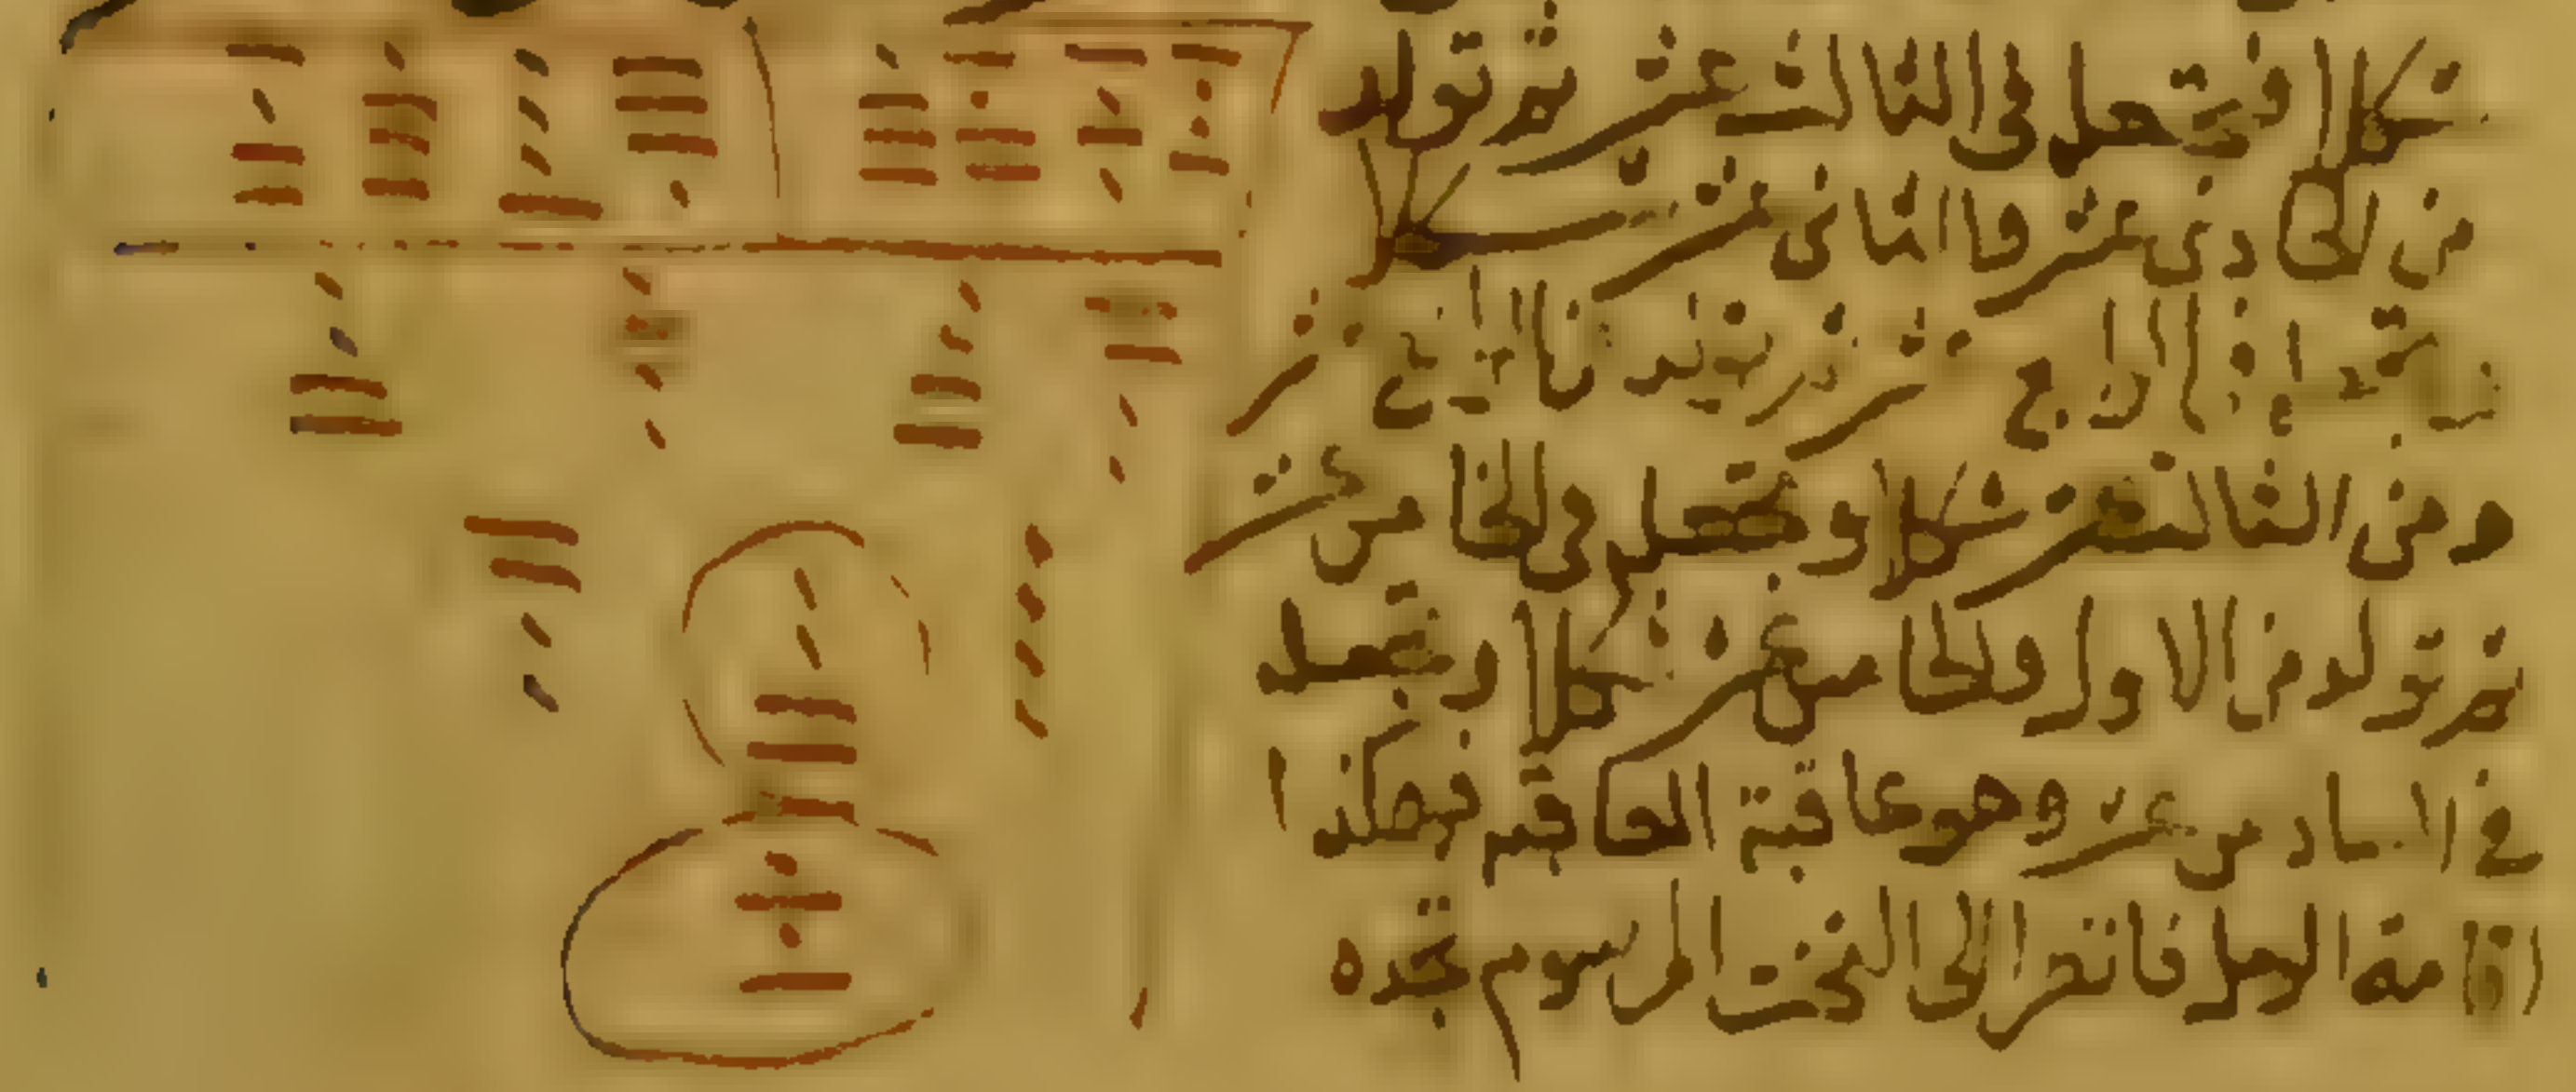 شكلا فتجعله في الثالث عشر ثم تولد
من الحادي عشر والثاني عشر شكلا
الرابع عشر
ومن الثالث عشر شكلا وتجعله في الخامس عشر
ثم تولد من الاول والخامس عشر شكلا وتجعله
في السادس عشر وهو عاقبة العاقبه فهكذا
اقامة الرمل فانظر الى التخت المرسوم تجده